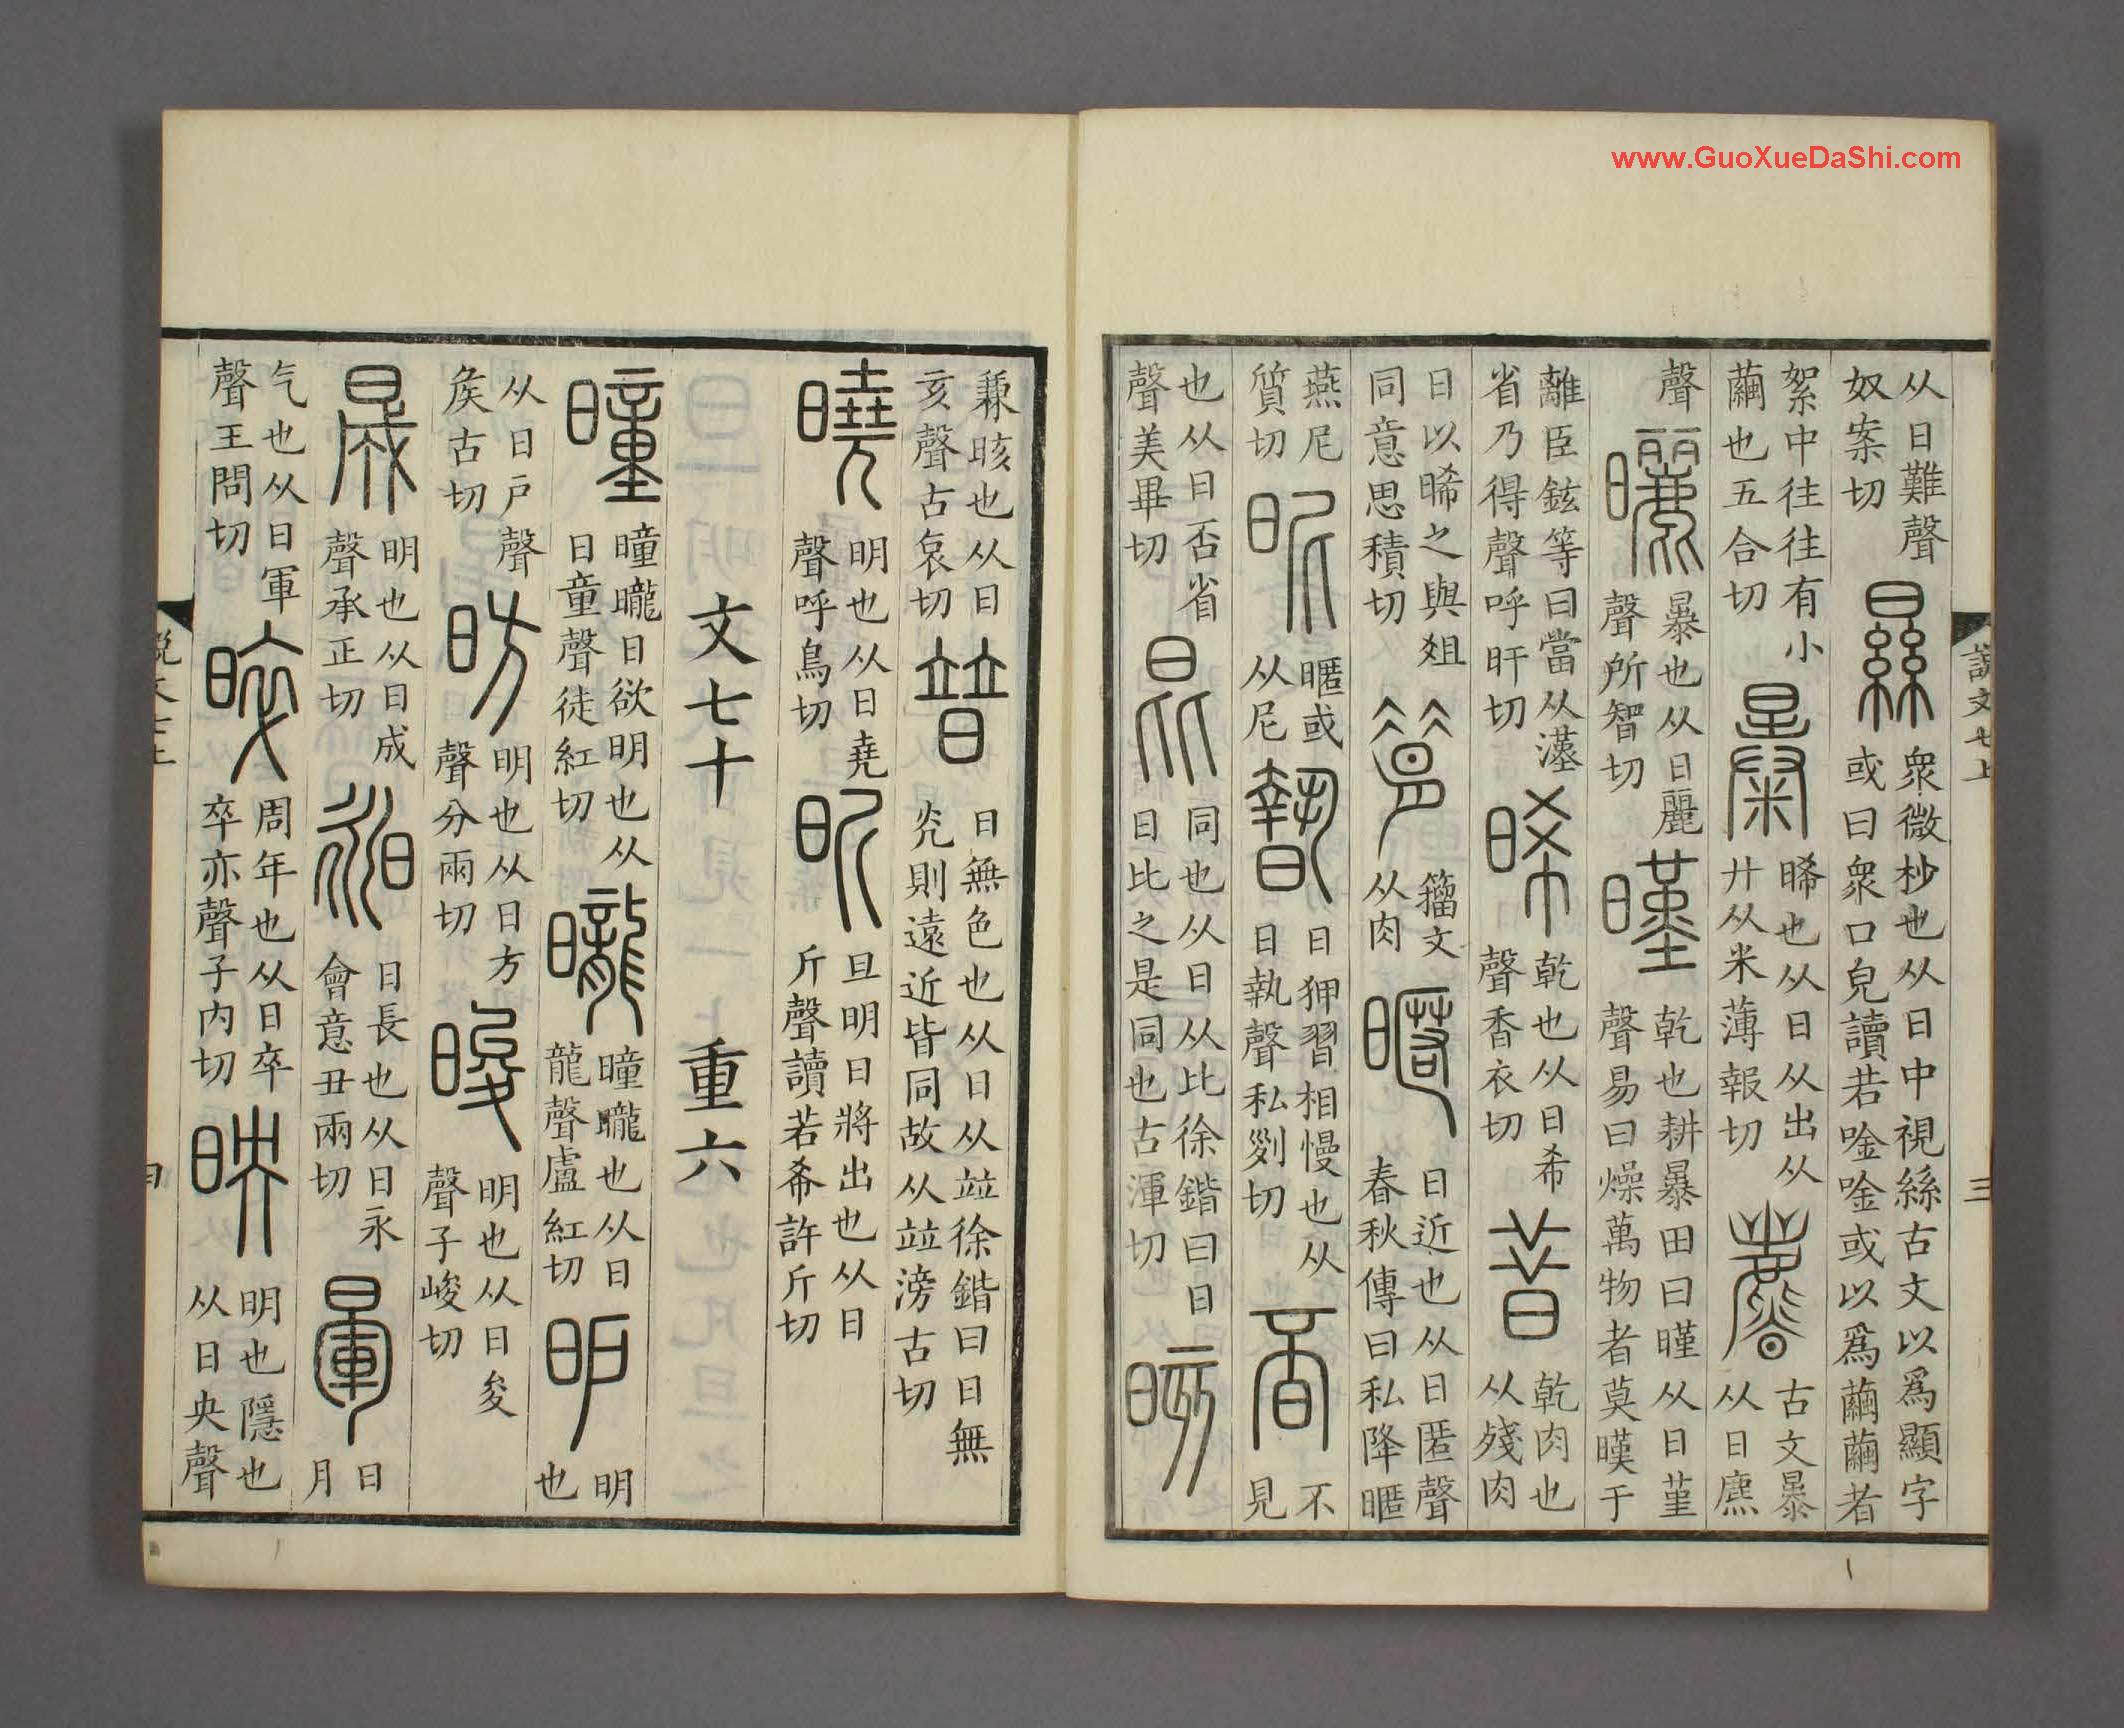 www.GuoXueDaShi.com
說文七上
三
从日難聲奴案切㬎眾微杪也从日中視絲古文以爲顯字或曰眾口皃讀若唫唫或以爲繭繭者
絮中往往有小繭也五合切暴晞也从日从出从廾从米薄報切𣋴古文暴从日麃
聲曬暴也从日麗聲所智切暵乾也耕暴田曰暵从日堇聲易曰燥萬物者莫暵于
離臣鉉等曰當从漢省乃得聲呼旰切晞乾也从日希聲香衣切昔乾肉也从殘肉
日以晞之與俎同意思積切𦠡籀文从肉暱日近也从日匿聲春秋傳曰私降暱
燕尼質切昵暱或从尼暬日狎習相慢也从日執聲私列切㫘不見
也从日否省聲美畢切昆同也从日从比徐鍇曰日日比之是同也古渾切晐
兼晐也从日亥聲古哀切普日無色也从日从竝徐鍇曰日無光則遠近皆同故从竝滂古切
曉明也从日堯聲呼鳥切昕旦明日將出也从日斤聲讀若希許斤切
文七十 重六
曈曈曨日欲明也从日童聲徒紅切曨曈曨也从日龍聲盧紅切昈明也
从日戶聲矦古切昉明也从日方聲分兩切晙明也从日夋聲子峻切
晟明也从日成聲承正切昶日長也从日永會意丑兩切暈日月
气也从日軍聲王問切晬周年也从日卒卒亦聲子內切映明也隱也从日央聲
說文七上
日